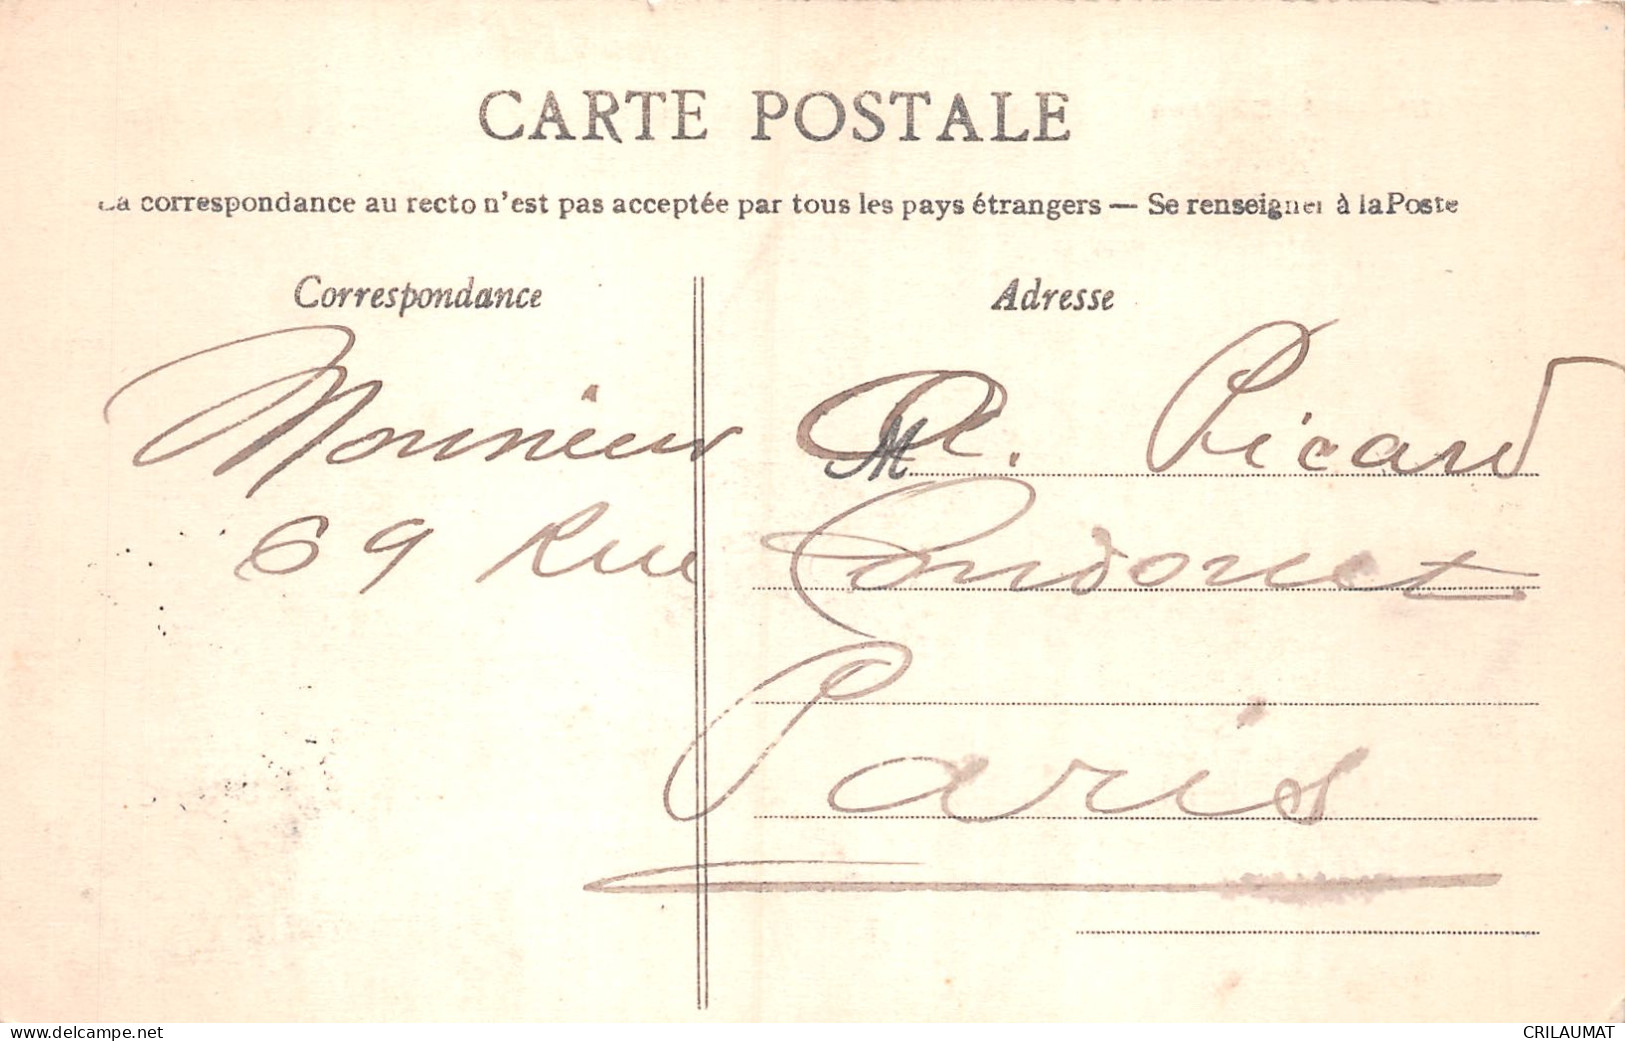 CARTE POSTALE
La correspondance au recto n'est pas acceptée par tous les pays étrangers — Se renseigner à la Poste
Correspondance
Adresse
Monsieur A. Picard
M
69 Rue Condorcet
Paris
www.delcampe.net
CRILAUMAT